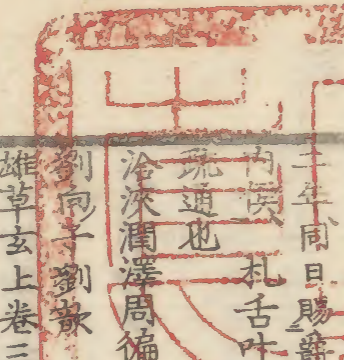 三年同日賜
内侯　札舌吐
疏通也
洽浹潤澤周徧
劉向子劉歆
雄草玄上卷三